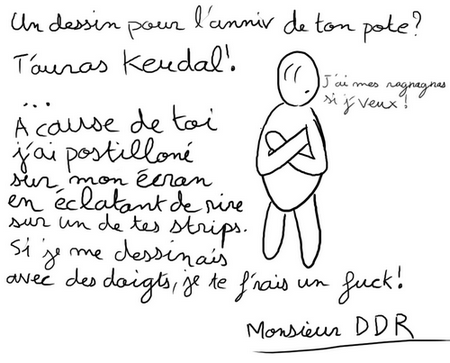 Un dessin pour l'anniv de ton pote?
T'auras Keudal!
...
A cause de toi
j'ai postilloné
sur mon écran
en éclatant de rire
sur un de tes strips.
Si je me dessinais
avec des doigts, je te f'rais un fuck!
J'ai mes ragnagnas
si j'veux!
Monsieur DDR